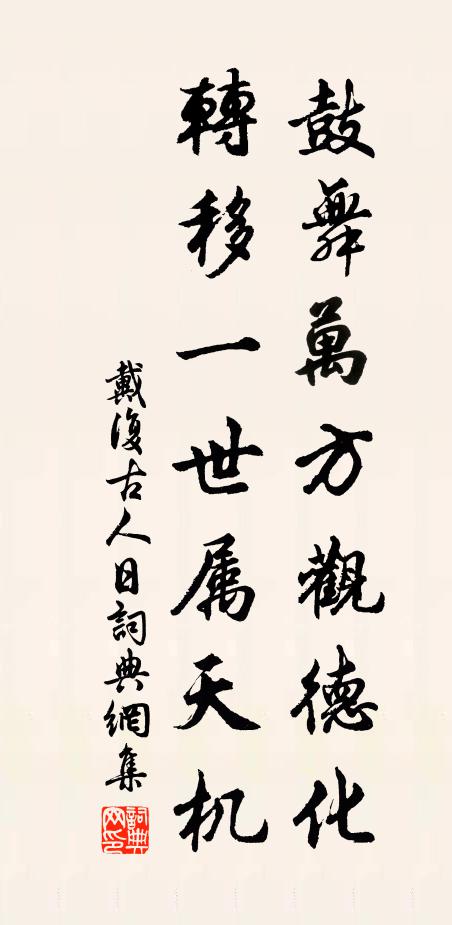 鼓舞萬方觀德化
轉移一世属天机
戴復古人日詞典網集
詞典网印